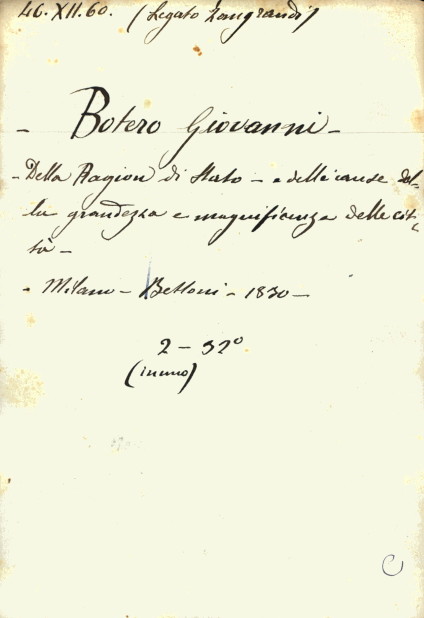 46. XII. 60. (Legato Zangrandi)
- Botero Giovanni -
- Della Ragion di Stato - e delle cause del-
la grandezza e magnificenza delle cit-
tà -
- Milano - Bettoni - 1830 -
2 - 32°
(in uno)
C